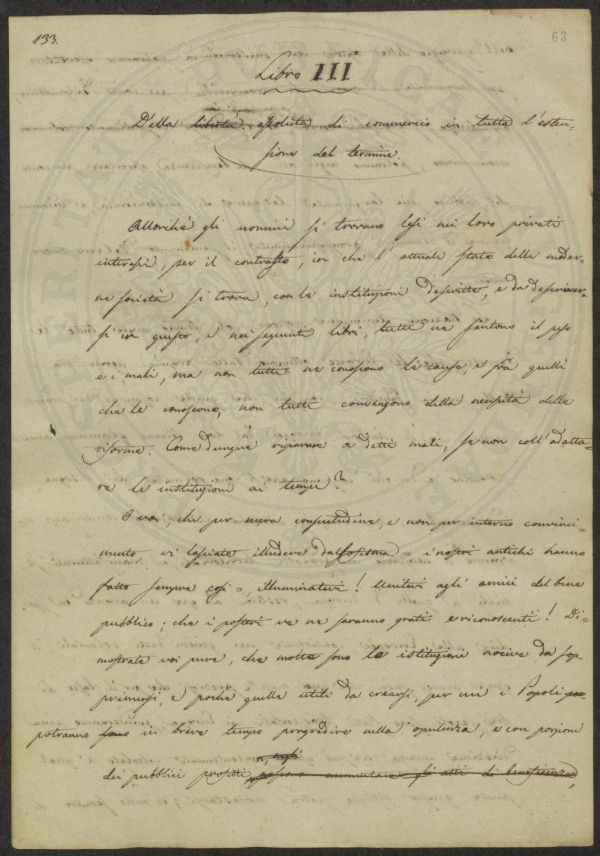 133.
63
Libro III
Della libertà assoluta di commercio in tutta l'esten-
sione del termine.
Allorchè gli uomini si trovano lesi nei loro privati
interessi, per il contrasto, in che l'attuale stato delle moder-
ne società si trova, con le instituzioni descritte, e da descriver-
si in questo, e nei seguenti libri, tutti ne sentono il peso
e i mali, ma non tutti ne conoscono le cause, e frà quelli
che le conoscono, non tutti convengono della necessità delle
riforme. Come dunque riparare a detti mali, se non coll'adatta-
re le instituzioni ai tempi?
O voi, che per mera consuetudine, e non per interno convinci-
mento vi lasciate illudere dal sofisma = i nostri antichi hanno
fatto sempre così =, illuminatevi! Unitevi agli amici del bene
pubblico; che i posteri ve ne saranno grati e riconoscenti! Di-
mostrate voi pure, che molte sono le istituzioni nocive da sop-
primersi, e poche quelle utili da crearsi, per cui i Popoli
potranno in breve tempo progredire nella opulenza, e con porzioni
dei pubblici profitti possono aumentare gli atti di beneficenza,